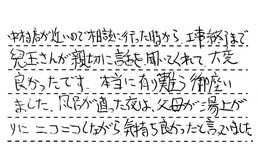 中村店が近いので相談に行った時から、工事終了まで
児玉さんが親切に話を聞いてくれて大変
良かったです。本当に有り難う御座い
ました。風呂が直った夜は、父母が湯上が
りにニコニコしながら気持ち良かったと言いました